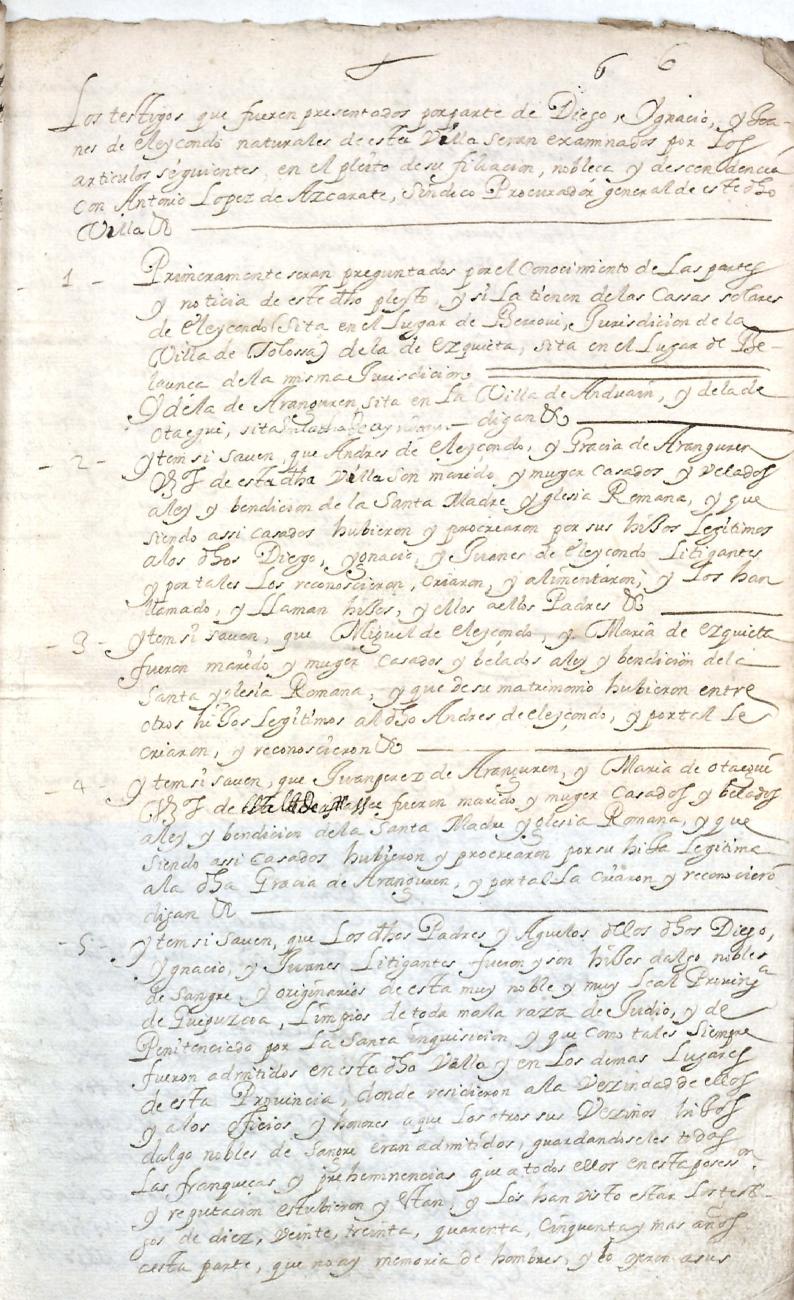 6 6
Los testigos que fueren presentados por parte de Diego, e Ygnacio, y Joa-
nes de eleycondo naturales de esta Villa seran examinados por Los
articulos siguientes, en el pleito de su filiacion, nobleça y descendencia
con Antonio Lopez de Azcarate, Sindico Procurador general de este dho
Villa &
- 1 - Primeramente seran preguntados por el Conocimiento de Las partes
y noticia de este dho pleyto, y si La tienen de las Cassas solares
de eleycondo (Sita en el Lugar de Berrovi, e Jurisdicion de la
Villa de Tolossa) de la de ezquieta, sita en el Lugar de Be-
launça de lla misma Jurisdicion,
Y de lla de Aranguren, sita en La Villa de Anduain, y de la de
otaegui, sita digan &
- 2 - Ytem si saven, que Andres de eleycondo, y Gracia de Aranguren
Vzs de esta dha Villa son marido, y muger casados y velados
a ley y bendicion de la Santa Madre yglesia Romana, y que
siendo assi casados hubieron y procrearon por sus hijjos Legitimos
a los dhos Diego, ygnacio, y Juanes de eleycondo Litigantes
y por tales Los reconoscieron, criaron, y alimentaron, y Los han
llamado, y LLaman hijjos, y ellos a ellos Padres &
- 3 - Ytem si saven, que Miguel de eleycondo, y Maria de ezquieta
fueron marido y muger Casados y belados a ley y bendicion de la
Santa yglesia Romana, y que de su matrimonio hubieron entre
otros hijjos Legitimos al dho Andres de eleycondo, y por tal Le
criaron, y reconoscieron &
- 4 - Ytem si saven, que Juanperez de Aranguren, y Maria de otaegui
Vzs de fueron marido y muger Casados y belados
a ley y bendicion de lla Santa Madre yglesia Romana, y que
siendo assi casados hubieron y procrearon por su hijja Legitima
a la dha Gracia de Aranguren, y por tal La criaron y reconocierõ
digan &
- 5 - Ytem si saven, que Los dhos Padres y Aguelos de llos dhos Diego,
Ygnacio, y Juanes Litigantes fueron y son hijjos dalgo nobles
de sangre, y originarios de esta muy noble y muy Leal Provinçª
de Guipuzcoa, Limpios de toda malla raza de Judio, y de
Penitenciado por La Santa inquisicion, y que como tales siempre
fueron admitidos en esta dho Villa y en Los demas Lugares
de esta Provincia, donde resicieron a lla Vezindad de ellos
y a los oficios y honores a que Los otros sus Vezinos hijjos
dalgo nobles de Sangre eran admitidos, guardandoseles todas
Las franqueças y preheminencias que a todos ellos en esta possesson
y reputacion estubieron y estan, y Los han visto estar Los testi-
gos de diez, veinte, treinta, quarenta, cinquenta y mas años
a esta parte, que no ay memoria de hombres, y lo oyeron a sus